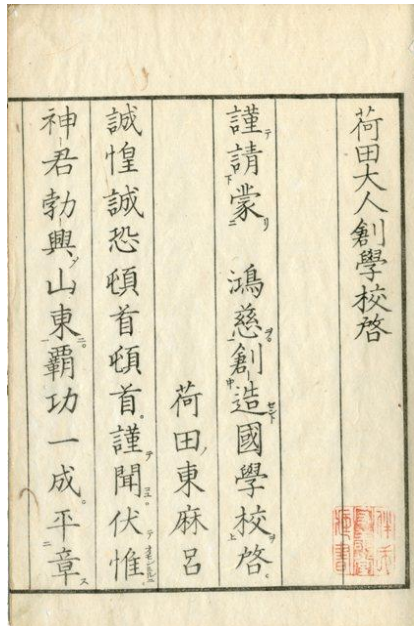 荷田大人創學校啓
謹請蒙　鴻慈創造國學校啓。
荷田東麻呂
誠惶誠恐頓首頓首。謹聞伏惟
神君勃興山東。覇功一成。平章